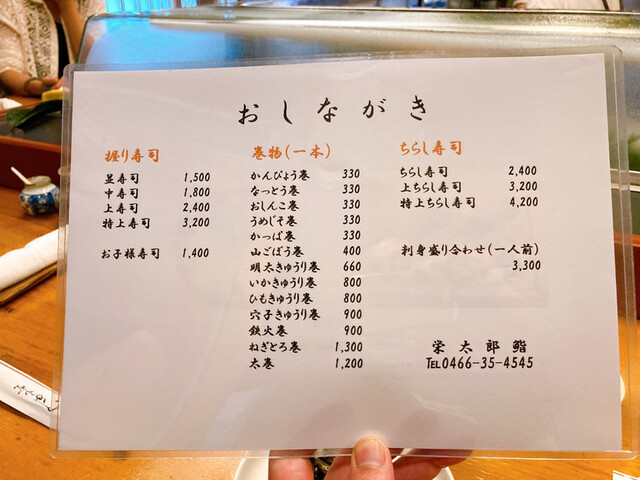 おしながき
握り寿司
並寿司 1,500
中寿司 1,800
上寿司 2,400
特上寿司 3,200
お子様寿司 1,400
巻物(一本)
かんぴょう巻 330
なっとう巻 330
おしんこ巻 330
うめじそ巻 330
かっぱ巻 330
山ごぼう巻 400
明太きゅうり巻 660
いかきゅうり巻 800
ひもきゅうり巻 800
穴子きゅうり巻 900
鉄火巻 900
ねぎとろ巻 1,300
太巻 1,200
ちらし寿司
ちらし寿司 2,400
上ちらし寿司 3,200
特上ちらし寿司 4,200
刺身盛り合わせ(一人前)
3,300
栄太郎鮨
TEL0466-35-4545